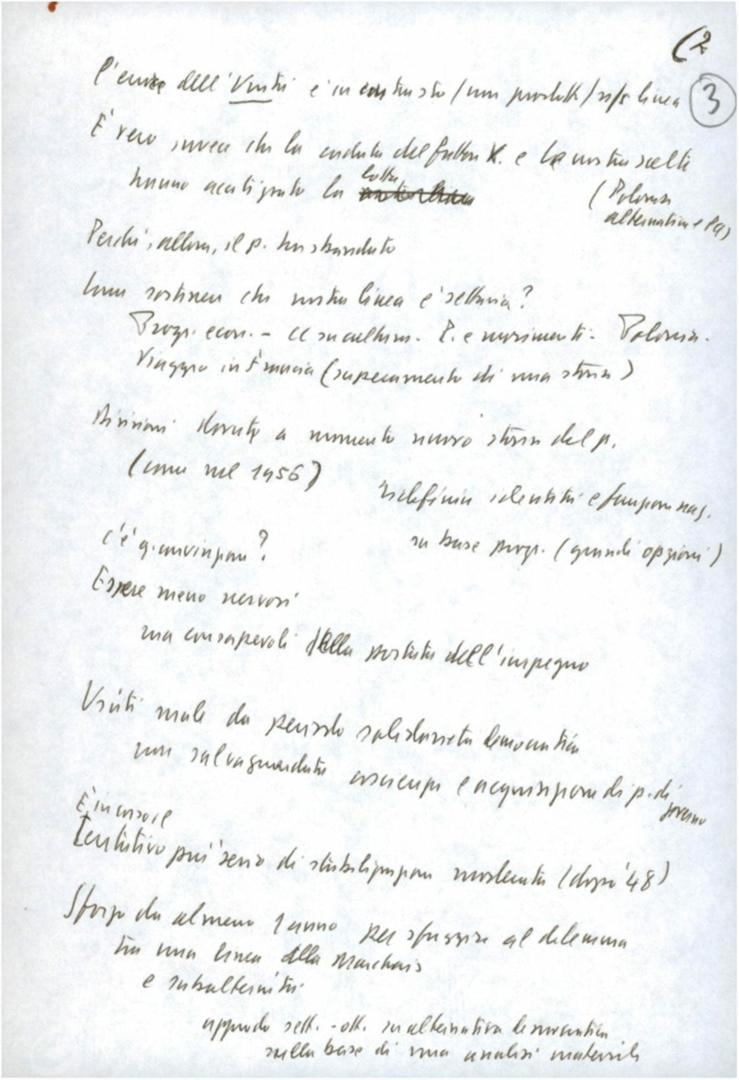 (2
3
l'errore dell'Unità è in contrasto / non prodotto / ns/s linea
È vero invece che la caduta del fattore K. e le nostre scelte
hanno acutizzato la lotta
(Polonia
alternativa e PS)
Perché, allora, il p. ha sbandato
Come sostenere che nostra linea è settaria?
Progr. econ. - CC su cultura. P. e movimenti. Polonia.
Viaggio in Francia (superamento di una storia)
Divisioni dovute a momento nuovo storia del p.
(come nel 1956)
ridefinire identità e funzione naz.
su base progr. (grandi opzioni)
C'è q. convinzione?
Essere meno nervosi
ma consapevoli della portata dell'impegno
Usciti male da periodo solidarietà democratica
non salvaguardata ascesa e acquisizione di p. di governo
È in corso il
tentativo più serio di stabilizzazione moderata (dopo '48)
Sforzo da almeno 1 anno per sfuggire al dilemma
tra una linea alla Marchais
e subalternità
approdo sett. - ott. su alternativa democratica
sulla base di una analisi materiale